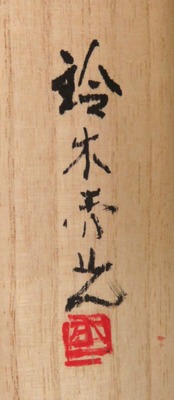 鈴木赤光